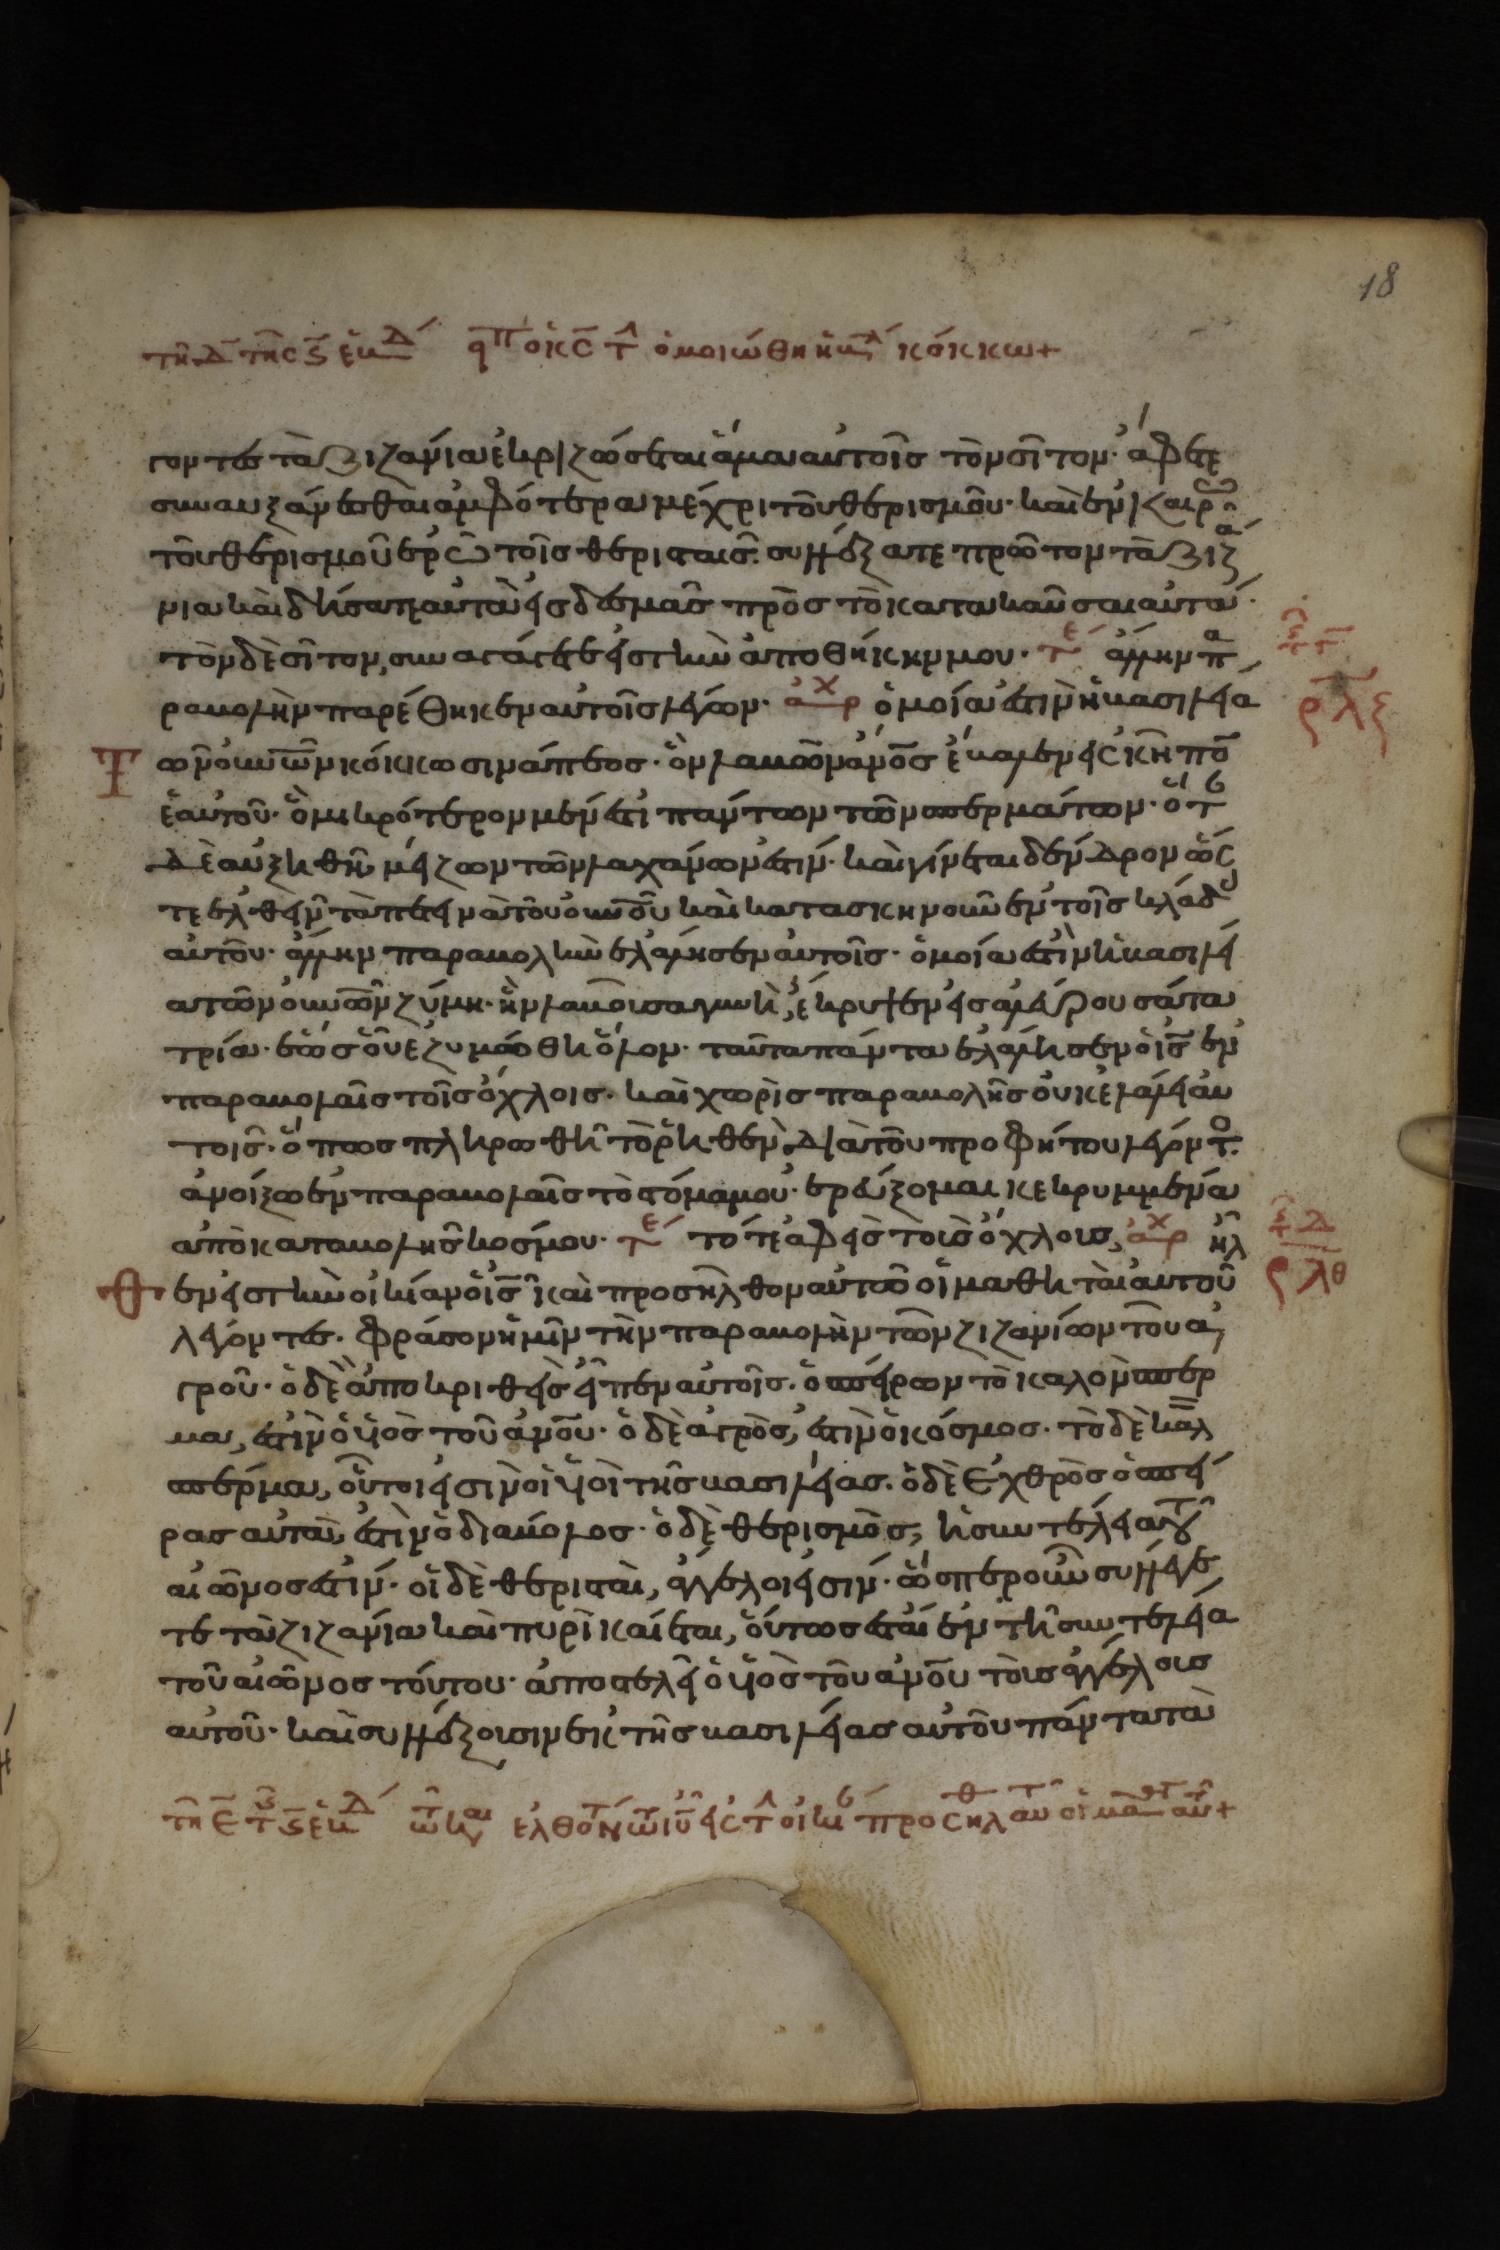 18
τῆ δ τῆς ς ἑβδ εἶπ ὁ κς τ ὁμοιώθη ἡ βασιλ κόκκω +
γοντες τὰ ζιζάνια ἐκριζώσηται ἅμα αὐτοῖς τὸν σῖτον· ἄφετε
συναυξάνεσθαι ἀμφότερα μέχρι τοῦ θερισμοῦ· καὶ ἐν καιρῶ
τοῦ θερισμοῦ ἐρῶ τοῖς θερισταῖς· συλλέξατε πρῶτον τὰ ζιζά
νια καὶ δήσατε αὐτὰ εἰς δεσμὰς πρὸς τὸ κατακαῦσαι αὐτά·
τὸν δὲ σῖτον, συναγάγετε εἰς τὴν ἀποθήκην μου· τέ ἄλλην πα
ραβολὴν παρέθηκεν αὐτοῖς λέγων· ἀρχ ὁμοία ἐστὶν ἡ βασιλεία
τῶν οὐνῶν κόκκω σινάπεως· ὃν λαβὼν ἀνος ἔβαλεν εἰς κῆπον
ἑαυτοῦ· ὃ μικρότερον μέν ἐστι πάντων τῶν σπερμάτων· ὅτ
δὲ αὐξηθῆ, μείζων τῶν λαχάνων ἐστίν· καὶ γίνεται δένδρον ὥς
τε ἐλθεῖν τὰ πετεινὰ τοῦ οὐνοῦ καὶ κατασκηνοῦν ἐν τοῖς κλάδ
αὐτοῦ· ἄλλην παραβολὴν ἐλάλησεν αὐτοῖς· ὁμοία ἐστὶν ἡ βασιλεί
α τῶν οὐνῶν ζύμη· ἣν λαβοῦσα γυνὴ, ἔκρυψεν εἰς ἀλεύρου σάτα
τρία· ἕως οὗ ἐζυμώθη ὅλον· ταῦτα πάντα ἐλάλησεν ὁ ις ἐν
παραβολαῖς τοῖς ὄχλοις· καὶ χωρὶς παραβολῆς οὐκ ἐλάλει αὐ
τοῖς· ὅπως πληρωθῆ τὸ ῥηθὲν διὰ τοῦ προφήτου λέγοντο·
ἀνοίξω ἐν παραβολαῖς τὸ στόμα μου· ἐρεύξομαι κεκρυμμένα
ἀπὸ καταβολῆς κόσμου· τέ τότε ἀφεὶς τοὺς ὄχλους, ἀρχ ἦλ
θεν εἰς τὴν οἰκίαν ὁ ις καὶ προσῆλθον αὐτῶ οἱ μαθηταὶ αὐτοῦ
λέγοντες· φράσον ἡμῖν τὴν παραβολὴν τῶν ζιζανίων τοῦ ἀ
γροῦ· ὁ δὲ ἀποκριθεὶς εἶπεν αὐτοῖς· ὁ σπείρων τὸ καλὸν σπέρ
μα, ἐστὶν ὁ υἱὸς τοῦ ἀνου· ὁ δὲ ἀγρὸς, ἐστὶν ὁ κόσμος· τὸ δὲ καλ
σπέρμα, οὗτοι εἰσὶν οἱ υἱοὶ τῆς βασιλείας· ὁ δὲ ἐχθρὸς ὁ σπεί
ρας αὐτά, ἐστὶν ὁ διάβολος· ὁ δὲ θερισμὸς, ἡ συντέλεια τοῦ
αἰῶνος ἐστίν· οἱ δὲ θερισταὶ, ἄγγελοι εἰσίν· ὥσπερ οὖν συλλέγε
τε τὰ ζιζάνια καὶ πυρὶ καίεται, οὕτως ἔσται ἐν τῆ συντελεία
τοῦ αἰῶνος τούτου· ἀποστελεῖ ὁ υἱὸς τοῦ ἀνου τοὺς ἀγγέλους
αὐτοῦ· καὶ συλλέξουσιν ἐκ τῆς βασιλείας αὐτοῦ πάντα τὰ
τῆ ε τ ς ἑβδ τῶ καιρ ἐλθόντ τῶ ιυ εἰς τ οἰκί προσῆλθ αυτ οἱ μαθητ αὐτ +
ρλζ
ρλθ